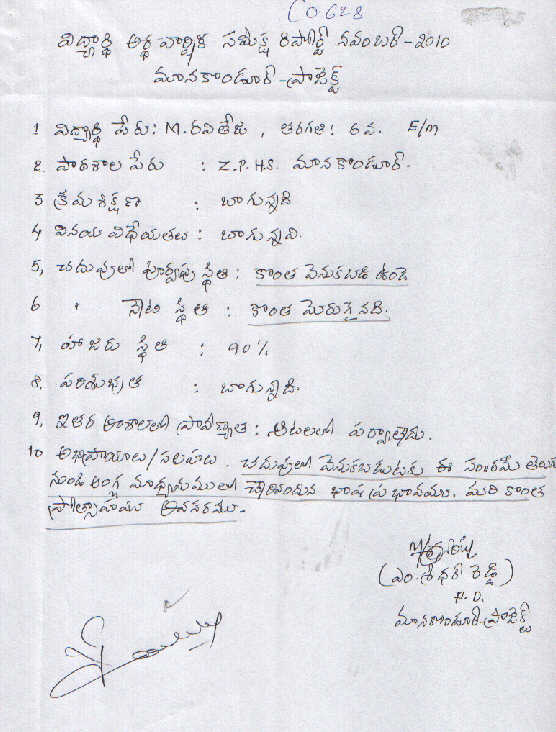 CO 628
విద్యార్థి అర్థ వార్షిక సమీక్ష రిపోర్ట్ నవంబర్ - 2010
మానకొండూర్ - ప్రాజెక్ట్
1 విద్యార్థి పేరు: M. రవితేజ, తరగతి: 6వ. E/m
2. పాఠశాల పేరు : Z.P.H.S. మానకొండూర్.
3 క్రమశిక్షణ : బాగున్నది
4 వినయ విధేయతలు : బాగున్నవి.
5, చదువులో పూర్వపు స్థితి : కొంత వెనుకబడి ఉండె
6 " నేటి స్థితి : కొంత మెరుగైనది.
7, హాజరు స్థితి : 90%
8. పరిశుభ్రత : బాగున్నది.
9, ఇతర అంశాలలో ప్రావీణ్యత : ఆటలలో పర్వాలేదు.
10 అభిప్రాయాలు/సలహాలు. చదువులో వెనుకబడుటకు ఈ సంవత్సరమే తెలుగు
నుండి ఆంగ్ల మాధ్యమములో చేరినందున భాష ప్రభావము. మరి కొంత
ప్రోత్సాహము అవసరము.
(ఎం. శ్రీధర్ రెడ్డి)
P.O.
మానకొండూర్-ప్రాజెక్ట్